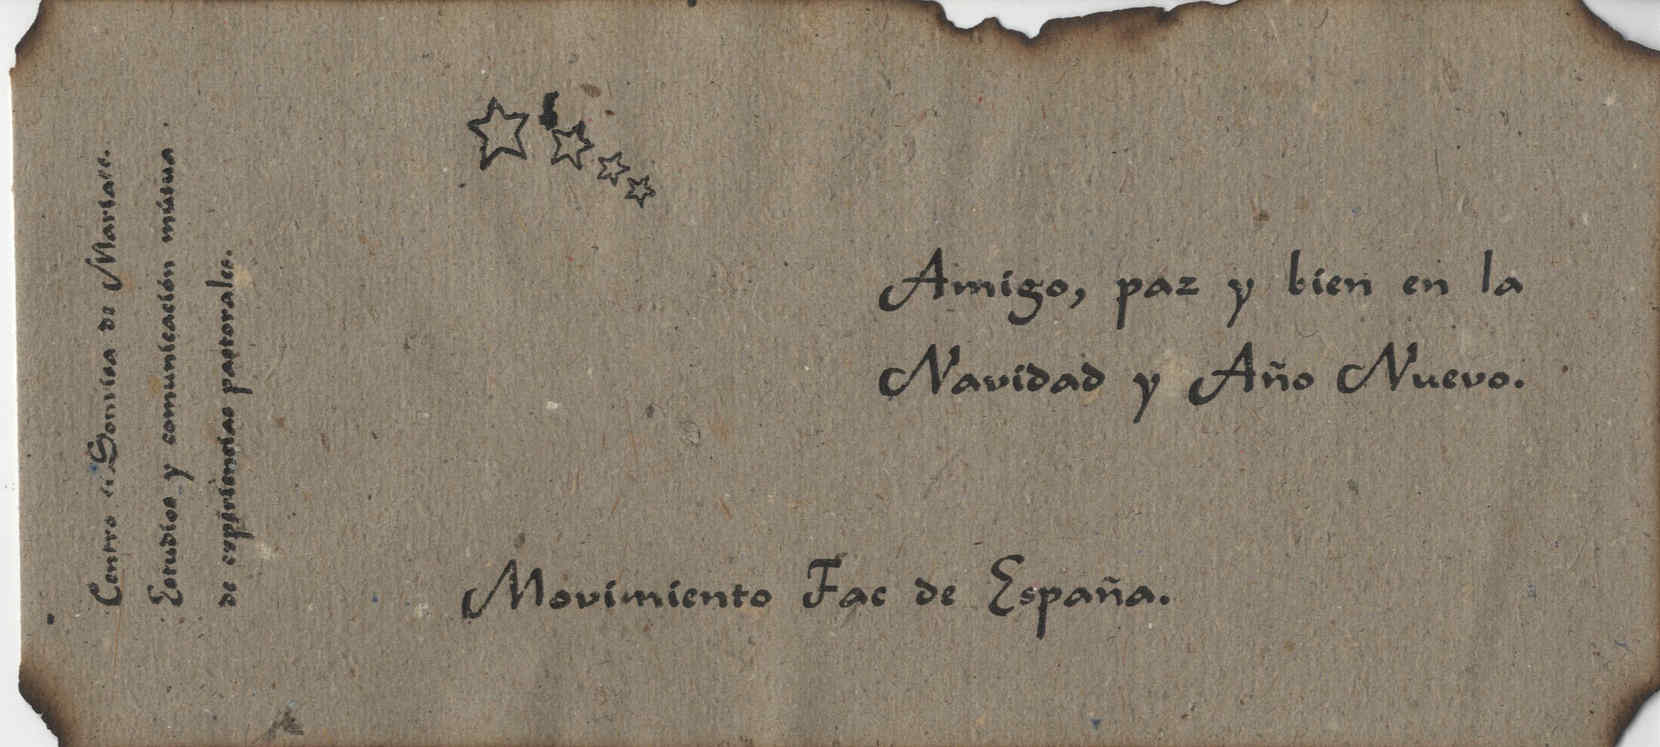 Centro de Sonrisa de Marsais.
Estudios y comunicación mutua
de experiencias pastorales.
Amigo, paz y bien en la
Navidad y Año Nuevo.
Movimiento Fac de España.